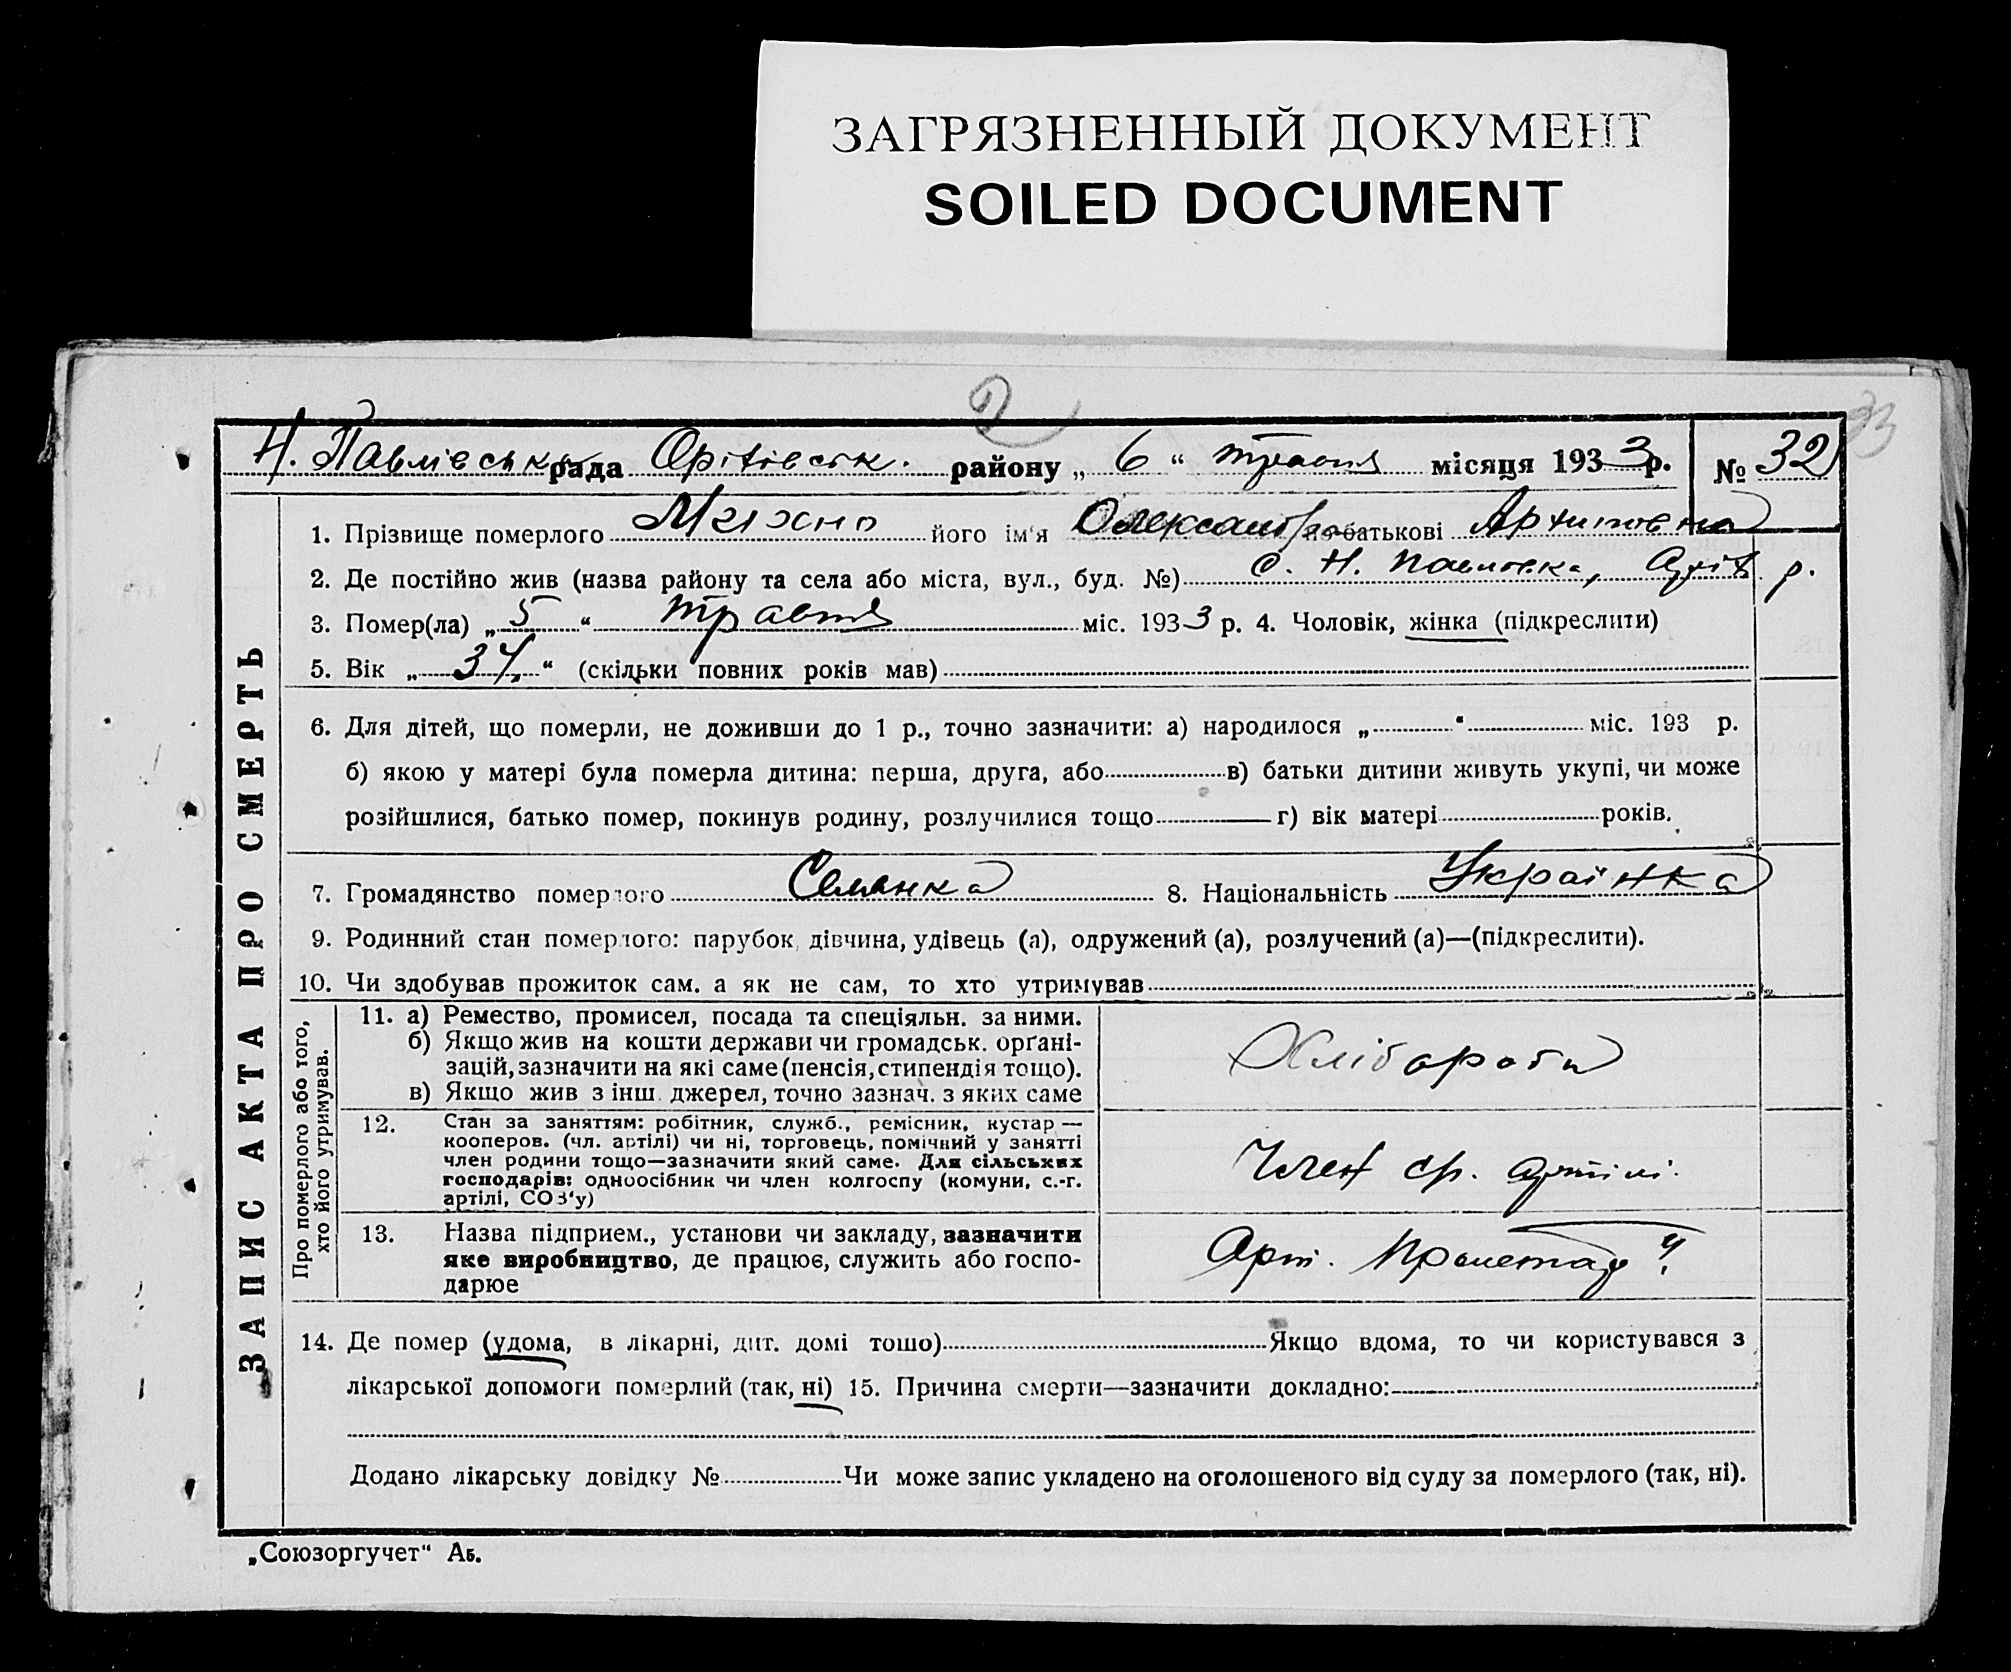 ЗАГРЯЗНЕННЫЙ ДОКУМЕНТ
SOILED DOCUMENT
2
33
Н. Павлівська рада Оріхівськ. району „ 6 “ травня місяця 1933 р. № 32
ЗАПИС АКТА ПРО СМЕРТЬ
1. Прізвище померлого його ім'я Олександра по батькові Архиповна
2. Де постійно жив (назва району та села або міста, вул., буд. №) с. Н. Павловка, Оріх. р.
3. Помер(ла) „ 5 “ травня міс. 1933 р. 4. Чоловік, жінка (підкреслити)
5. Вік „ 34 “ (скільки повних років мав)
6. Для дітей, що померли, не доживши до 1 р., точно зазначити: а) народилося „ “ міс. 193 р.
б) якою у матері була померла дитина: перша, друга, або в) батьки дитини живуть укупі, чи може
розійшлися, батько помер, покинув родину, розлучилися тощо г) вік матері років.
7. Громадянство померлого Селянка 8. Національність Українка
9. Родинний стан померлого: парубок, дівчина, удівець (а), одружений (а), розлучений (а)—(підкреслити).
10. Чи здобував прожиток сам, а як не сам, то хто утримував
Про померлого або того,
хто його утримував.
11. а) Ремество, промисел, посада та спеціяльн. за ними.
б) Якщо жив на кошти держави чи громадськ. орґані-
зацій, зазначити на які саме (пенсія, стипендія тощо).
в) Якщо жив з інш. джерел, точно зазнач. з яких саме
Хлібороби
12. Стан за заняттям: робітник, служб., ремісник, кустар —
кооперов. (чл. артілі) чи ні, торговець, помічний у занятті
член родини тощо—зазначити який саме. Для сільських
господарів: одноосібник чи член колгоспу (комуни, с.-г.
артілі, СОЗ'у)
Член артілі
13. Назва підприєм., установи чи закладу, зазначити
яке виробництво, де працює, служить або госпо-
дарює
Арт. Пролетар "
14. Де помер (удома, в лікарні, дит. домі тощо) Якщо вдома, то чи користувався з
лікарської допомоги померлий (так, ні) 15. Причина смерти—зазначити докладно:
Додано лікарську довідку № Чи може запис укладено на оголошеного від суду за померлого (так, ні).
„Союзоргучет“ Аб.